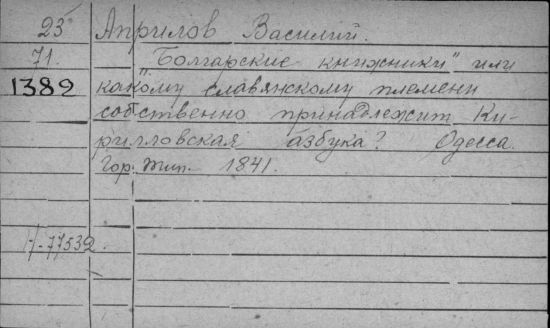 23 Априлов Василий.
71. "Болгарские книжники" или
1382 какому славянскому племени
собственно принадлежит Ки-
рилловская азбука? Одесса.
Гор. тип. 1841.
И-77532.